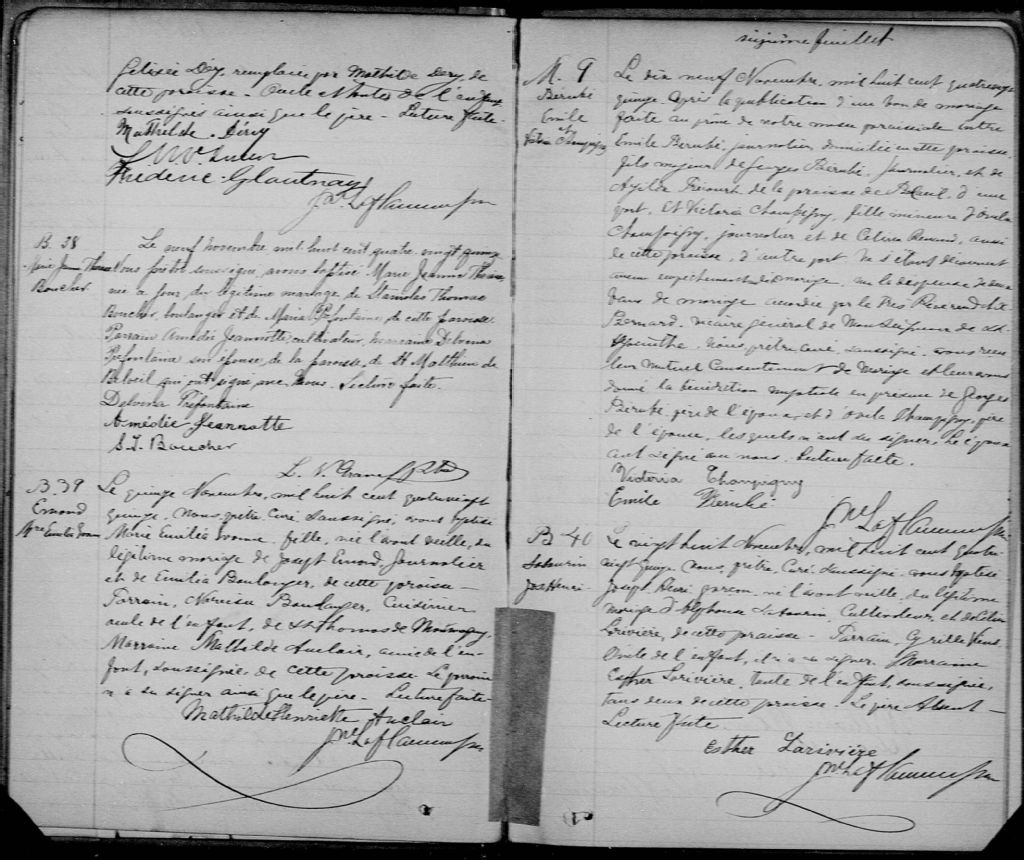 Mathilde Dery de
cette paroisse. Oncle et tante de l'enfant
soussignés ainsi que le père. Lecture faite.
Mathilde Déry
Frédéric Glautnay
B. 38
Marie Jeanne Thomas
Boucher
Le neuf novembre mil huit cent quatre vingt quinze
Nous prêtre soussigné avons baptisé Marie Jeanne Thomas
née ce jour, du légitime mariage de Stanislas Thomas
Boucher, boulanger et de Maria Préfontaine de cette paroisse
Parrain Amédé Jeannotte, cultivateur, marraine Delvina
Préfontaine son épouse, de la paroisse de St Matthieu de
Beloeil qui ont signé avec nous. Lecture faite.
Delvina Préfontaine
Amédée Jeannotte
S. T. Boucher
B. 39
Emond
Mie Emilia Ivonne
Le quinze Novembre, mil huit cent quatrevingt
quinze. Nous, prêtre Curé Soussigné, avons baptisé
Marie Emilia Ivonne, fille, née l'avant veille, du
légitime mariage de Joseph Emond Journalier
et de Emilia Boulanger, de cette paroisse –
Parrain, Narcisse Boulanger, Cuisinier
oncle de l'enfant, de St Thomas de Montmagny,
Marraine Mathilde Auclair, amie de l'en-
fant, soussignée, de cette paroisse. Le parrain
n'a su signer ainsi que le père – Lecture faite
Mathilde Henriette Auclair
sixième feuillet
M. 9
Bérubé
Emile
et
Victoria Champigny
Le dix neuf Novembre, mil huit cent quatrevingt
quinze. Après la publication d'un ban de mariage
faite au prône de notre messe paroissiale entre
Emile Bérubé, journalier, domicilié en cette paroisse,
fils majeur de Georges Bérubé, Journalier, et de
de la paroisse de Beloeil, d'une
part, Et Victoria Champigny, fille mineure d'Ovila
Champigny, journalier et de Celina Renaud, aussi
de cette paroisse, d'autre part. Ne s'étant découvert
aucun empêchement de mariage, vu la dispense de deux
bans de mariage accordée par le Très Révérend
Bernard, vicaire général de Monseigneur de St
Hyacinthe. Nous prêtre Curé, soussigné, avons reçu
leur mutuel Consentement de Mariage et leur avons
donné la bénédiction nuptiale en présence de Georges
Bérubé, père de l'époux, et d'Ovila Champigny, père
de l'épouse, lesquels n'ont su signer. Les époux
ont signé avec nous. Lecture faite.
Victoria Champigny
Emile Bérubé
B 40
Jos Henri
Le vingt huit Novembre, mil huit cent quatre
vingt quinze. Nous, prêtre, Curé, Soussigné, avons baptisé
Joseph Henri garçon, né l'avant veille, du légitime
mariage d'Alphonse Cultivateur, et de Celina
Larivière, de cette paroisse – Parrain, Cyrille
Oncle de l'enfant, et n'a su signer. Marraine
Esther Larivière, tante de l'enfant, soussignée,
tous deux de cette paroisse. Le père Absent –
Lecture faite
Esther Larivière